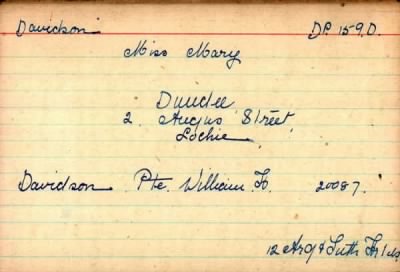 Davidson DP. 159.D.
Miss Mary
Dundee
2 Angus Street,
Lochie.
Davidson Pte. William H. 20087.
12 Arg & Suth Hrs